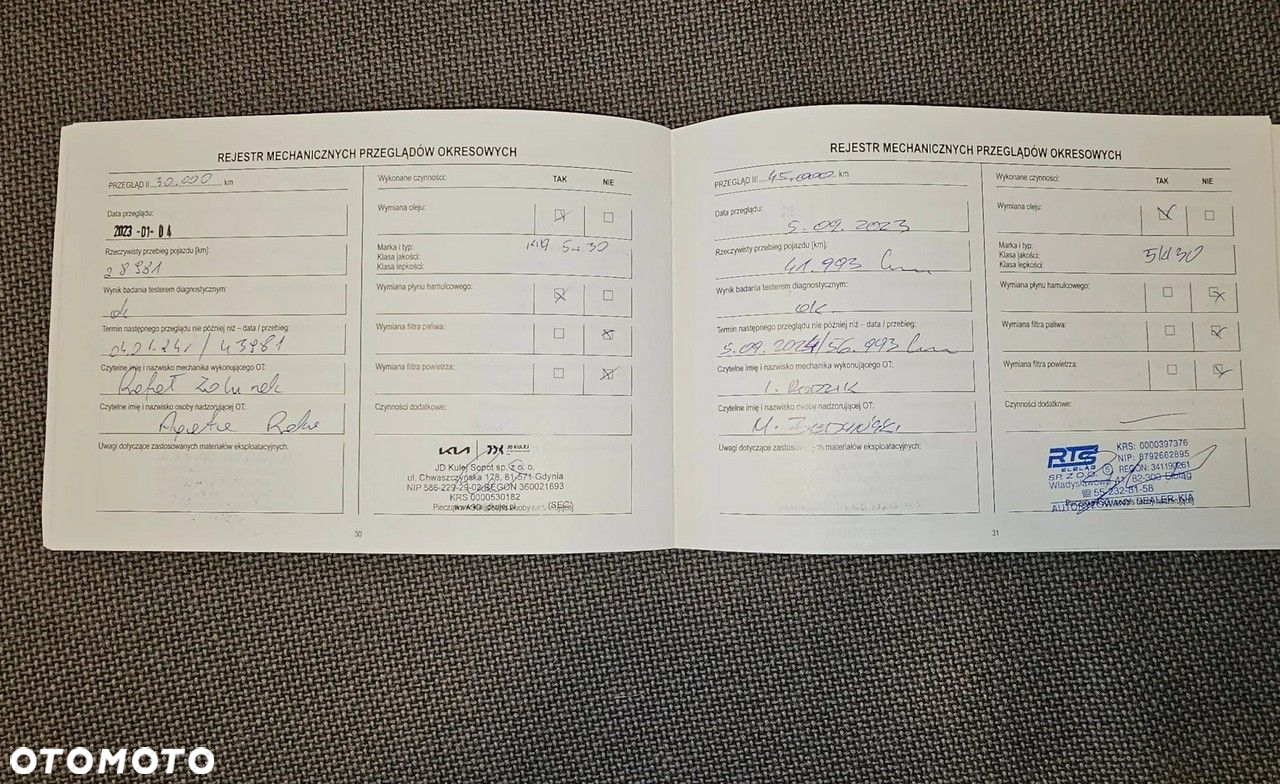 REJESTR MECHANICZNYCH PRZEGLĄDÓW OKRESOWYCH
PRZEGLĄD II 30.000 km
Data przeglądu:
2023-01-04
Rzeczywisty przebieg pojazdu [km]:
28981
Wynik badania testerem diagnostycznym:
ok
Termin następnego przeglądu nie później niż – data / przebieg:
04.01.24r / 43981
Czytelne imię i nazwisko mechanika wykonującego OT:
Czytelne imię i nazwisko osoby nadzorującej OT:
Uwagi dotyczące zastosowanych materiałów eksploatacyjnych:
Wykonane czynności: TAK NIE
Wymiana oleju:
Marka i typ: 5w30
Klasa jakości:
Klasa lepkości:
Wymiana płynu hamulcowego:
Wymiana filtra paliwa:
Wymiana filtra powietrza:
Czynności dodatkowe:
KIA JD KULEJ
JD Kulej Sopot sp. z o. o.
ul. Chwaszczyńska 178, 81-571 Gdynia
NIP 586-229-29-02 REGON 360021693
KRS 0000530182
(SEG)
30
REJESTR MECHANICZNYCH PRZEGLĄDÓW OKRESOWYCH
PRZEGLĄD III 45.000 km
Data przeglądu:
5.09.2023
Rzeczywisty przebieg pojazdu [km]:
41.993 km
Wynik badania testerem diagnostycznym:
ok
Termin następnego przeglądu nie później niż – data / przebieg:
5.09.2024/56.993 km
Czytelne imię i nazwisko mechanika wykonującego OT:
Czytelne imię i nazwisko osoby nadzorującej OT:
Uwagi dotyczące zastosowanych materiałów eksploatacyjnych:
Wykonane czynności: TAK NIE
Wymiana oleju:
Marka i typ: 5W30
Klasa jakości:
Klasa lepkości:
Wymiana płynu hamulcowego:
Wymiana filtra paliwa:
Wymiana filtra powietrza:
Czynności dodatkowe:
KRS: 0000397376
RTS NIP: 8792662895
ELBLĄG
SP. Z O.O.
82-300 Elbląg
AUTORYZOWANY DEALER KIA
31
OTOMOTO